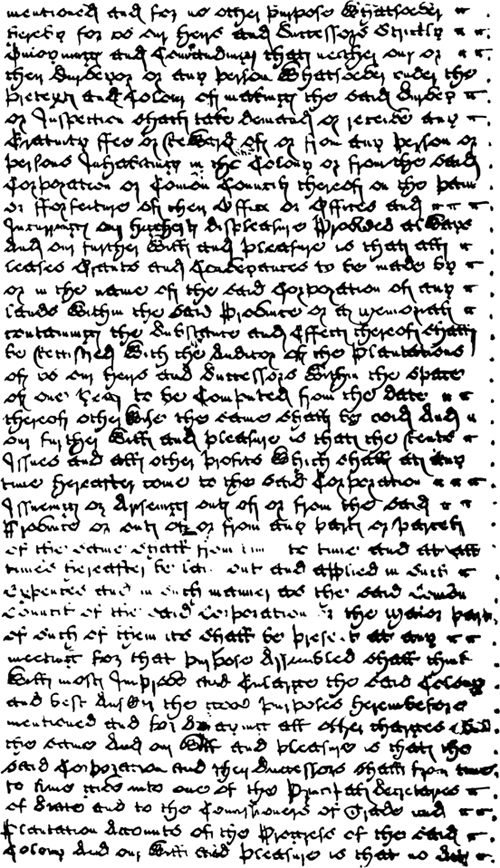 mentioned and for no other purpose Whatsoever
hereby for us our heirs and Successors Strictly
Injoyning and Comanding that neither our or
their Surveyor or any person Whatsoever under the
pretext and Colour of making the said Survey
or Inspection shall take demand or receive any
Gratuity ffee or Reward of or from any person or
persons Inhabiting in the Colony or from the said
Corporation or Comon Councill thereof on the pain
of fforfeiture of their Office or Offices and
Incurring our highest displeasure Provided alwaies
And our further Will and pleasure is that all
leases Grants and Conveyances to be made by
or in the name of the said Corporation of any
lands Within the said Province or a memoriall
containing the Substance and Effect thereof shall
be Registred With the Auditor of the Plantations
of us our heirs and Successors Within the space
of one Year to be Computed from the date
thereof otherWise the same shall be void And
our further Will and pleasure is that the Rents
Issues and all other profits Which shall att any
time hereafter come to the said Corporation
Issueing or Ariseing out of or from the said
Province or out of or from any part or parcell
of the same shall from time to time and at all
times hereafter be laid out and applied in such
Expences and in such manner as the said Comon
Councill of the said Corporation or the Major part
of such of them its shall be present at any
meeting for that purpose Assembled shall think
Will most Improve and Enlarge the said Colony
and best Answer the good purposes herembefore
mentioned and for defraying all other charges about
the same And our Will and pleasure is that the
said Corporation and their Successors shall from time
to time give into one of the Principall Secretaries
of State and to the Comissioners of Trade and
Plantation Accounts of the Progress of the said
Colony And our Will and pleasure is that no Act